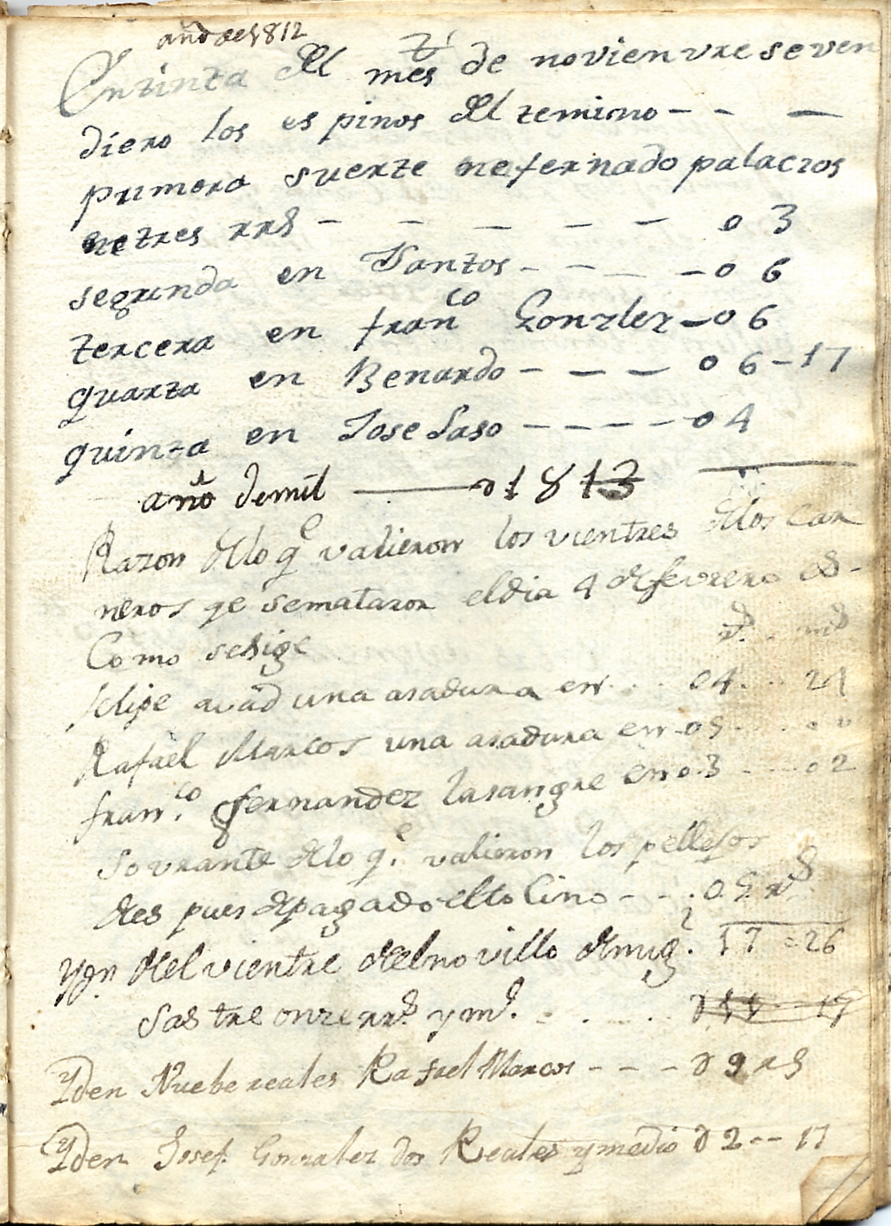 año de 1812
En rinta del mes de novienvre se ven
diero los espinos del termino - - -
primera suerte ne fernado palacios
ne tres rrs - - - - - 0 3
segunda en Santos - - - - 0 6
tercera en franco Gonzlez - 0 6
quarta en Benardo - - - - 0 6 - 17
quinta en Jose Laso - - - - - 0 4
año demil ——— 1813
Razon dlo qe valieron los vientres dlos car
neros qe semataron eldia 4 defevrero es-
Como sesige rs ms
felipe avad una asadura en . . 04 . . 21
Rafael Marcos una asadura en - 05 . . . 0
franco. fernandez lasangre en 03 . . . 02
Sovrante dlo qe. valieron los pellejos
des pues dpagado elto Cino - - . 0 5 rs
Ydn. del vientre delnovillo dmigl. 17 = 26
Sastre onze rrs. y ms. . . . .
Yden Nuebe reales Rafael Marcos - - - 0 9 rs
Yden Josef. Gonzalez dos Reales ymedio 0 2 - - 17